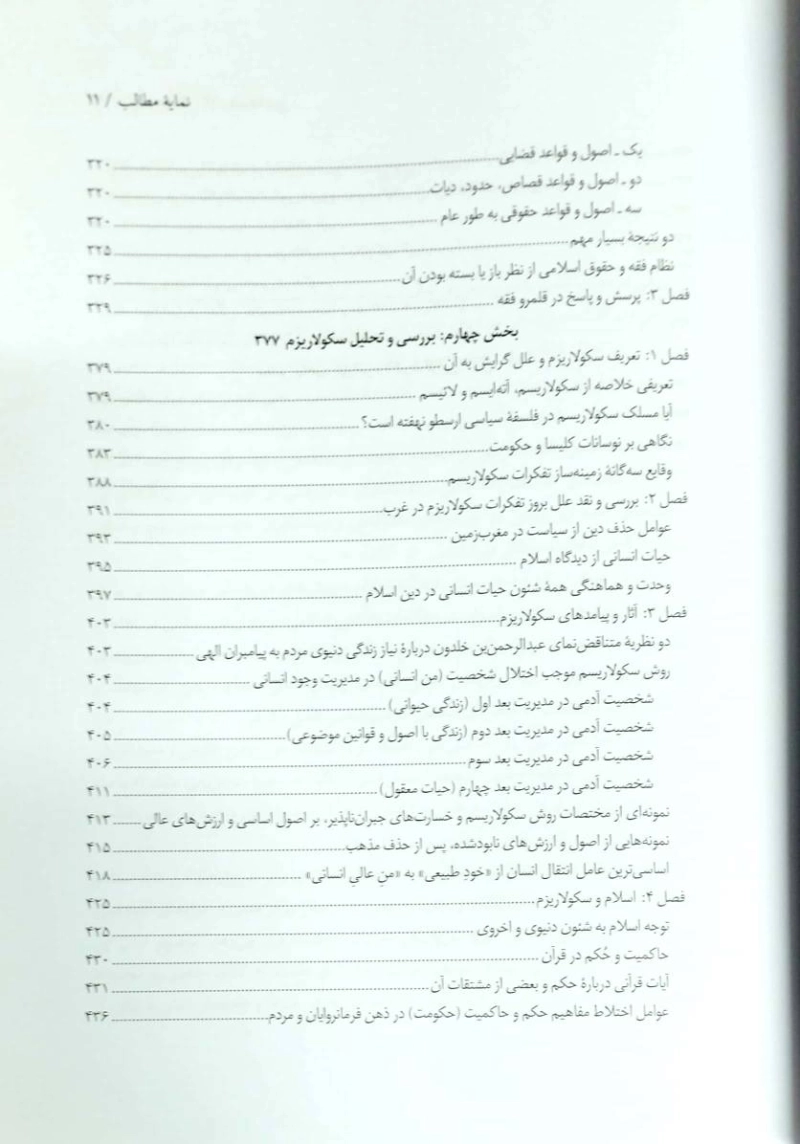 نمایهٔ مطالب / ۱۱
یک ـ اصول و قواعد قضایی ۳۲۰
دو ـ اصول و قواعد قصاص، حدود، دیات ۳۲۰
سه ـ اصول و قواعد حقوقی به طور عام ۳۲۰
دو نتیجهٔ بسیار مهم ۳۲۵
نظام فقه و حقوق اسلامی از نظر باز یا بسته بودن آن ۳۲۶
فصل ۳: پرسش و پاسخ در قلمرو فقه ۳۲۹
بخش چهارم: بررسی و تحلیل سکولاریزم ۳۷۷
فصل ۱: تعریف سکولاریزم و علل گرایش به آن ۳۷۹
تعریفی خلاصه از سکولاریسم، آته‌ایسم و لائیسم ۳۷۹
آیا مسلک سکولاریسم در فلسفهٔ سیاسی ارسطو نهفته است؟ ۳۸۰
نگاهی بر نوسانات کلیسا و حکومت ۳۸۳
وقایع سه‌گانهٔ زمینه‌ساز تفکرات سکولاریسم ۳۸۸
فصل ۲: بررسی و نقد علل بروز تفکرات سکولاریزم در غرب ۳۹۱
عوامل حذف دین از سیاست در مغرب‌زمین ۳۹۳
حیات انسانی از دیدگاه اسلام ۳۹۵
وحدت و هماهنگی همهٔ شئون حیات انسانی در دین اسلام ۳۹۷
فصل ۳: آثار و پیامدهای سکولاریزم ۴۰۳
دو نظریهٔ متناقض‌نمای عبدالرحمن‌بن خلدون دربارهٔ نیاز زندگی دنیوی مردم به پیامبران الهی ۴۰۳
روش سکولاریسم موجب اختلال شخصیت (من انسانی) در مدیریت وجود انسانی ۴۰۴
شخصیت آدمی در مدیریت بعد اول (زندگی حیوانی) ۴۰۴
شخصیت آدمی در مدیریت بعد دوم (زندگی با اصول و قوانین موضوعی) ۴۰۵
شخصیت آدمی در مدیریت بعد سوم ۴۰۶
شخصیت آدمی در مدیریت بعد چهارم (حیات معقول) ۴۱۱
نمونه‌ای از مختصات روش سکولاریسم و خسارت‌های جبران‌ناپذیر، بر اصول اساسی و ارزش‌های عالی ۴۱۳
نمونه‌هایی از اصول و ارزش‌های نابودشده، پس از حذف مذهب ۴۱۵
اساسی‌ترین عامل انتقال انسان از «خودِ طبیعی» به «منِ عالیِ انسانی» ۴۱۸
فصل ۴: اسلام و سکولاریزم ۴۲۵
توجه اسلام به شئون دنیوی و اخروی ۴۲۵
حاکمیت و حُکم در قرآن ۴۳۰
آیات قرآنی دربارهٔ حکم و بعضی از مشتقات آن ۴۳۱
عوامل اختلاط مفاهیم حکم و حاکمیت (حکومت) در ذهن فرمانروایان و مردم ۴۳۶